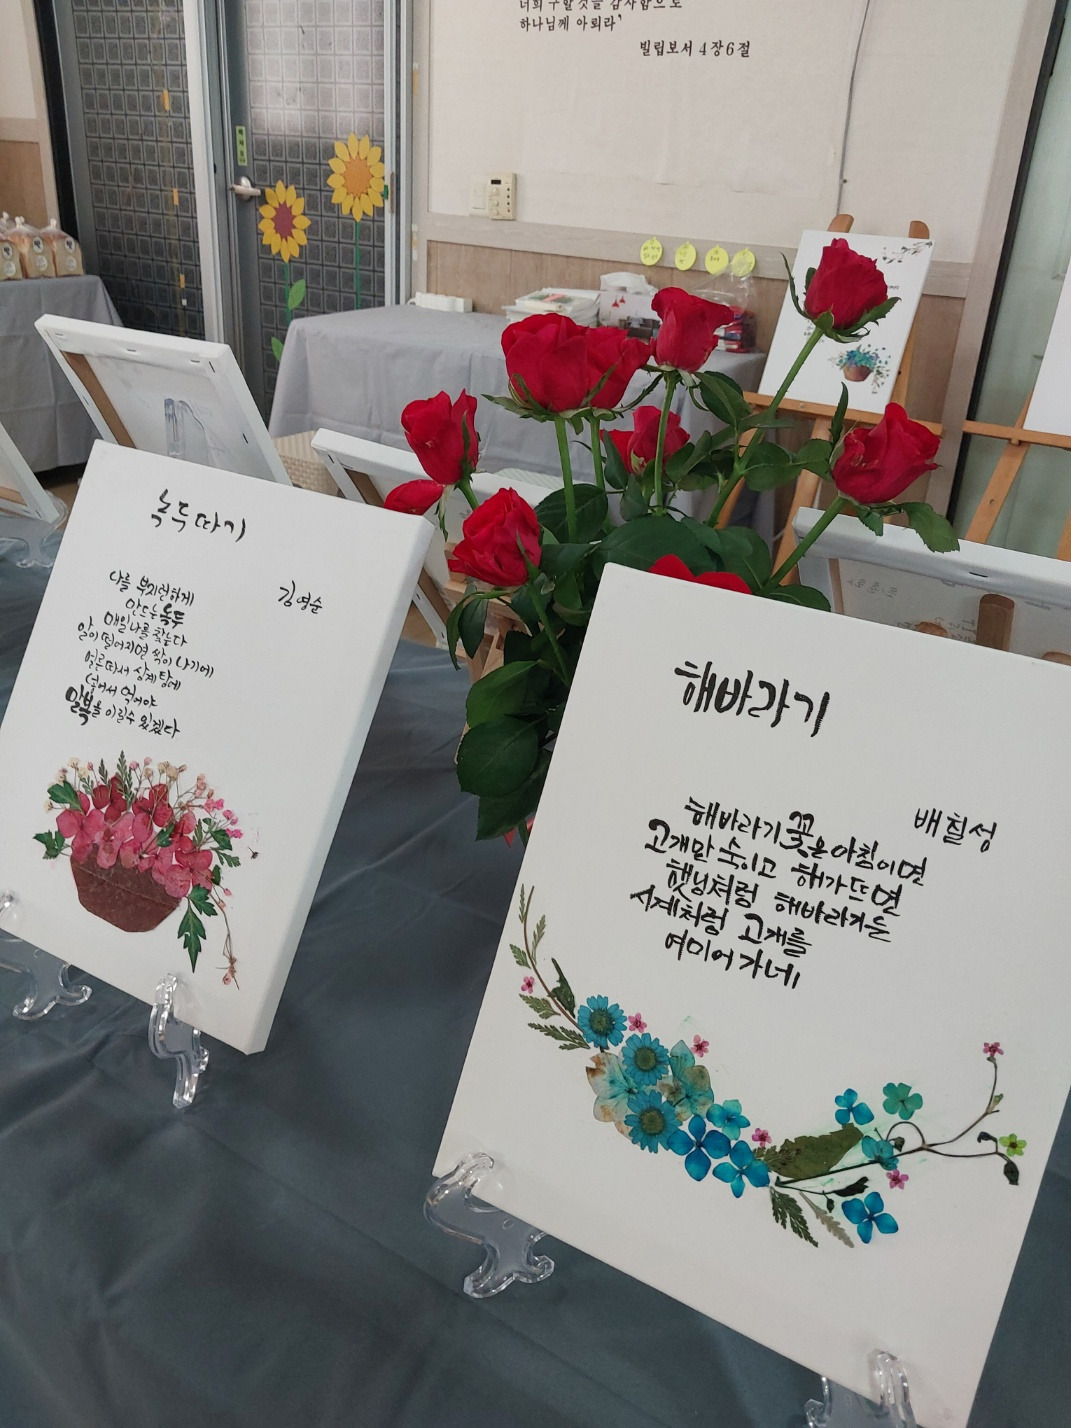 너희 구할 것을 감사함으로
하나님께 아뢰라'
빌립보서 4장 6절
녹두따기
김영순
나를 부지런하게
만드는 녹두
매일 나를 찾는다
알이 떨어지면 싹이 나기에
얼른 따서 삼계탕에
넣어서 먹어야
말복을 이길수 있겠다
해바라기
배칠성
해바라기 꽃은 아침이면
고개만 숙이고 해가 뜨면
햇님처럼 해바라기는
시계처럼 고개를
여미어 가네